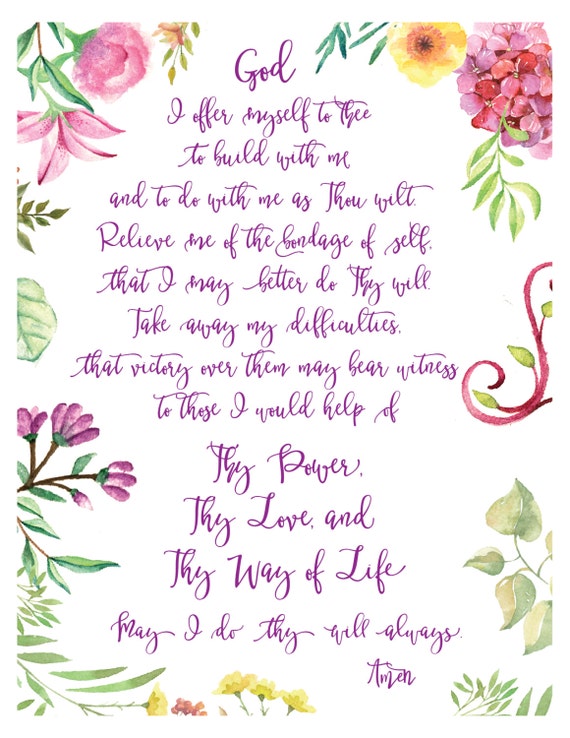 God
I offer myself to thee
to build with me
and to do with me as Thou wilt.
Relieve me of the bondage of self,
that I may better do Thy will.
Take away my difficulties,
that victory over them may bear witness
to those I would help of
Thy Power,
Thy Love, and
Thy Way of Life
May I do thy will always.
Amen